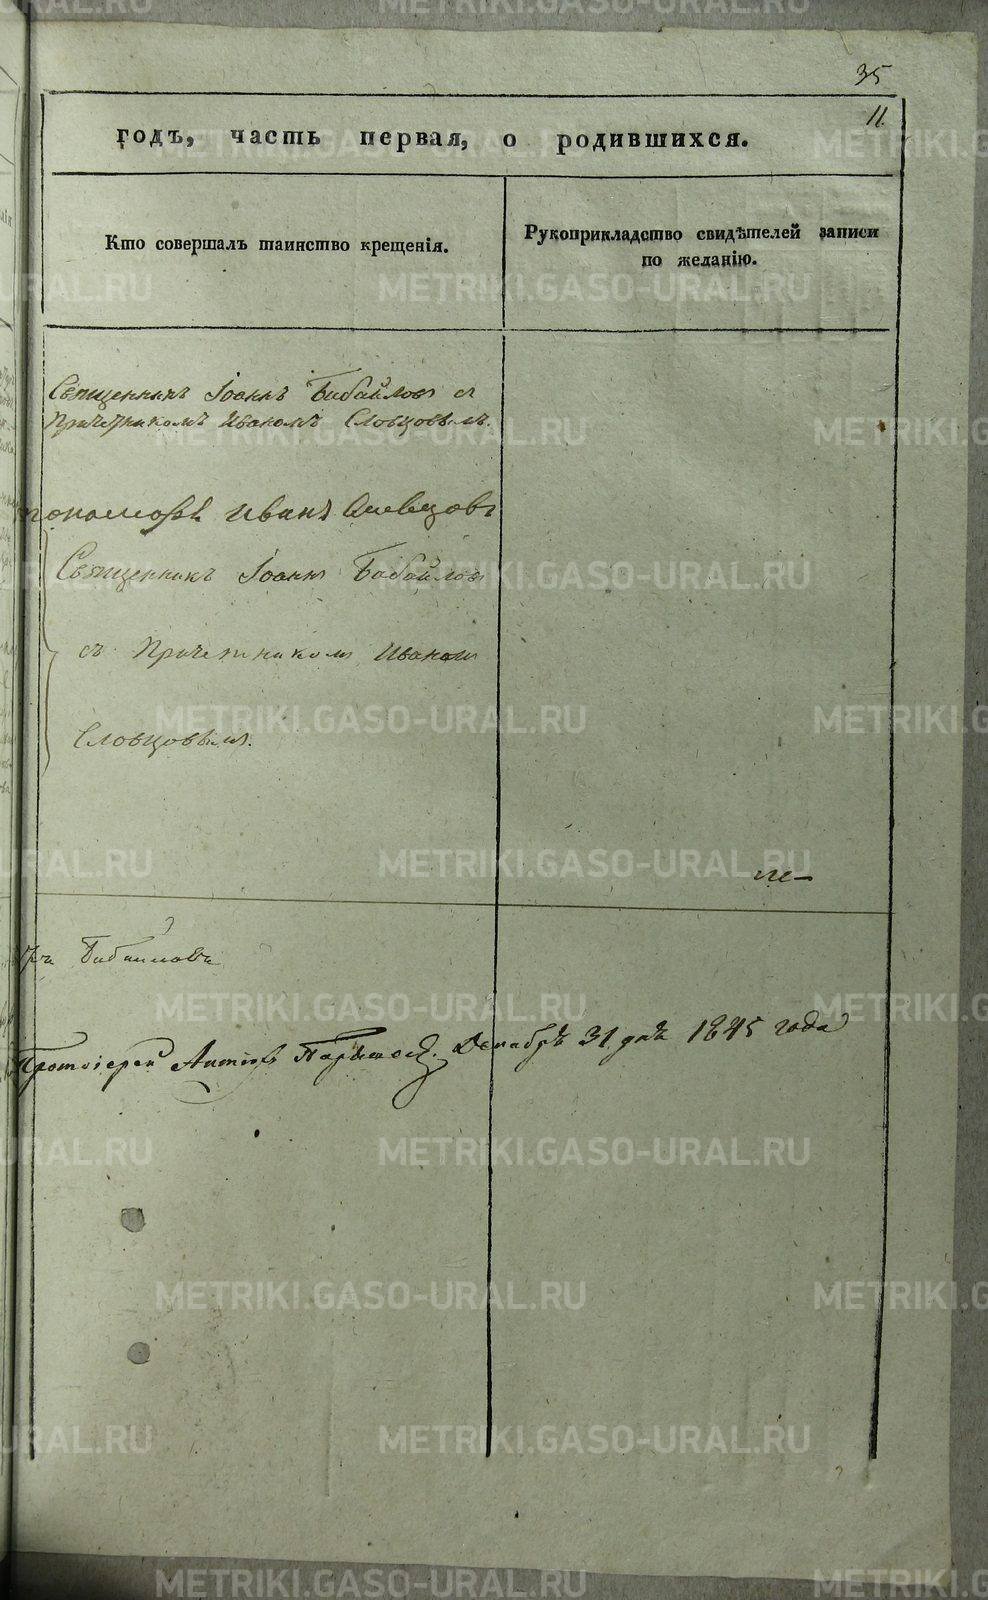 35
11.
годъ, часть первая, о родившихся.
Кто совершалъ таинство крещенія.
Рукоприкладство свидѣтелей записи
по желанію.
Священникъ Іоаннъ Бибайловъ съ
Причетникомъ Иваномъ Словцовымъ.
пономарь Иванъ Словцовъ
Священникъ Іоаннъ Бибайловъ
съ Причетникомъ Иваномъ
Словцовымъ.
Бибайловъ
Протоіерей Декабрь 31 дня 1845 года
METRIKI.GASO-URAL.RU